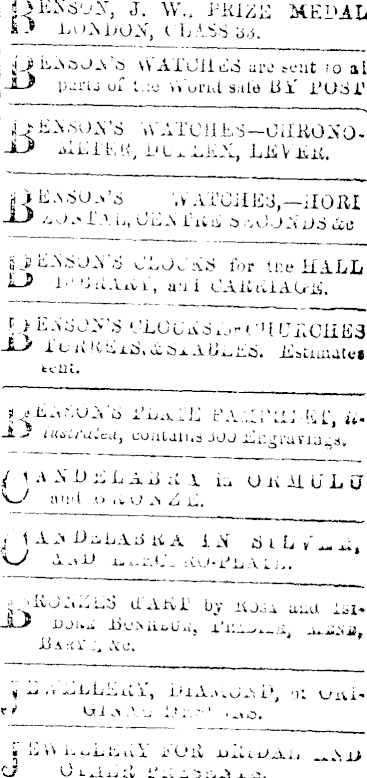 BENSON, J. W., PRIZE MEDAL
LONDON, CLASS 33.
BENSON'S WATCHES are sent to al
parts of the World safe BY POST
BENSON'S WATCHES—CHRONO-
METER, DUPLEX, LEVER.
BENSON'S WATCHES,—HORI
ZONTAL, CENTRE SECONDS &c
BENSON'S CLOCKS for the HALL
LIBRARY, and CARRIAGE.
BENSON'S CLOCKS for CHURCHES
TURRETS, & STABLES. Estimates
sent.
BENSON'S PLATE PAMPHLET, il-
lustrated, contains 300 Engravings.
CANDELABRA in ORMULU
and BRONZE.
CANDELABRA IN SILVER,
AND ELECTRO-PLATE.
BRONZES d'ART by Rosa and Isi-
dore Bonheur, MENE,
BARYE, &c.
JEWELLERY, DIAMOND, or ORI-
GINAL DESIGNS.
JEWELLERY FOR BRIDAL AND
OTHER PRESENTS.